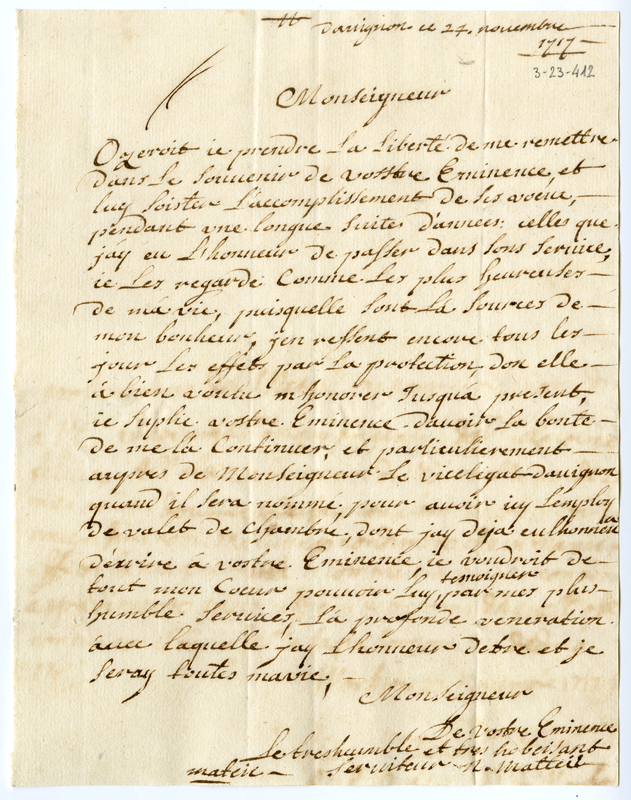 Davignon ce 27. novembre
1717
3-23-412
Monseigneur
Ozeroit ie prendre La Liberté de me remettre
dans Le Souvenir de vostre Eminence, et
luy Soister L'accomplissement de ses voeux,
pendant une longue Suite d'années; celles que
j'ay eu L'honneur de passer dans sons Service,
ie Les regarde Comme Les plus heureuses
de ma vie, puisquelle Sont La Sources de
mon bonheur, jen ressent encore tous les
jour Les effets par La protection don elle
à bien voulu m'honorer Jusqu'a present,
ie Suplie vostre Eminence d'avoir La bonté
de me la Continuer, et particulierement
aupres de Monseigneur Le vicelegat d'avignon
quand il Sera nommé, pour avoir icy L'employ
de valet de Chambre, dont jay deja eu lhonneur
d'exrire à vostre Eminence, ie voudroit de
tout mon Coeur pouvoir Luy temoigner par mes plus
humble Services, La profonde veneration
avec laquelle jay Lhonneur debre et je
Seray toutes ma vie,
Monseigneur
De vostre Eminence
Le treshumble et tres hobeisant
mateii Serviteur N. Matteii